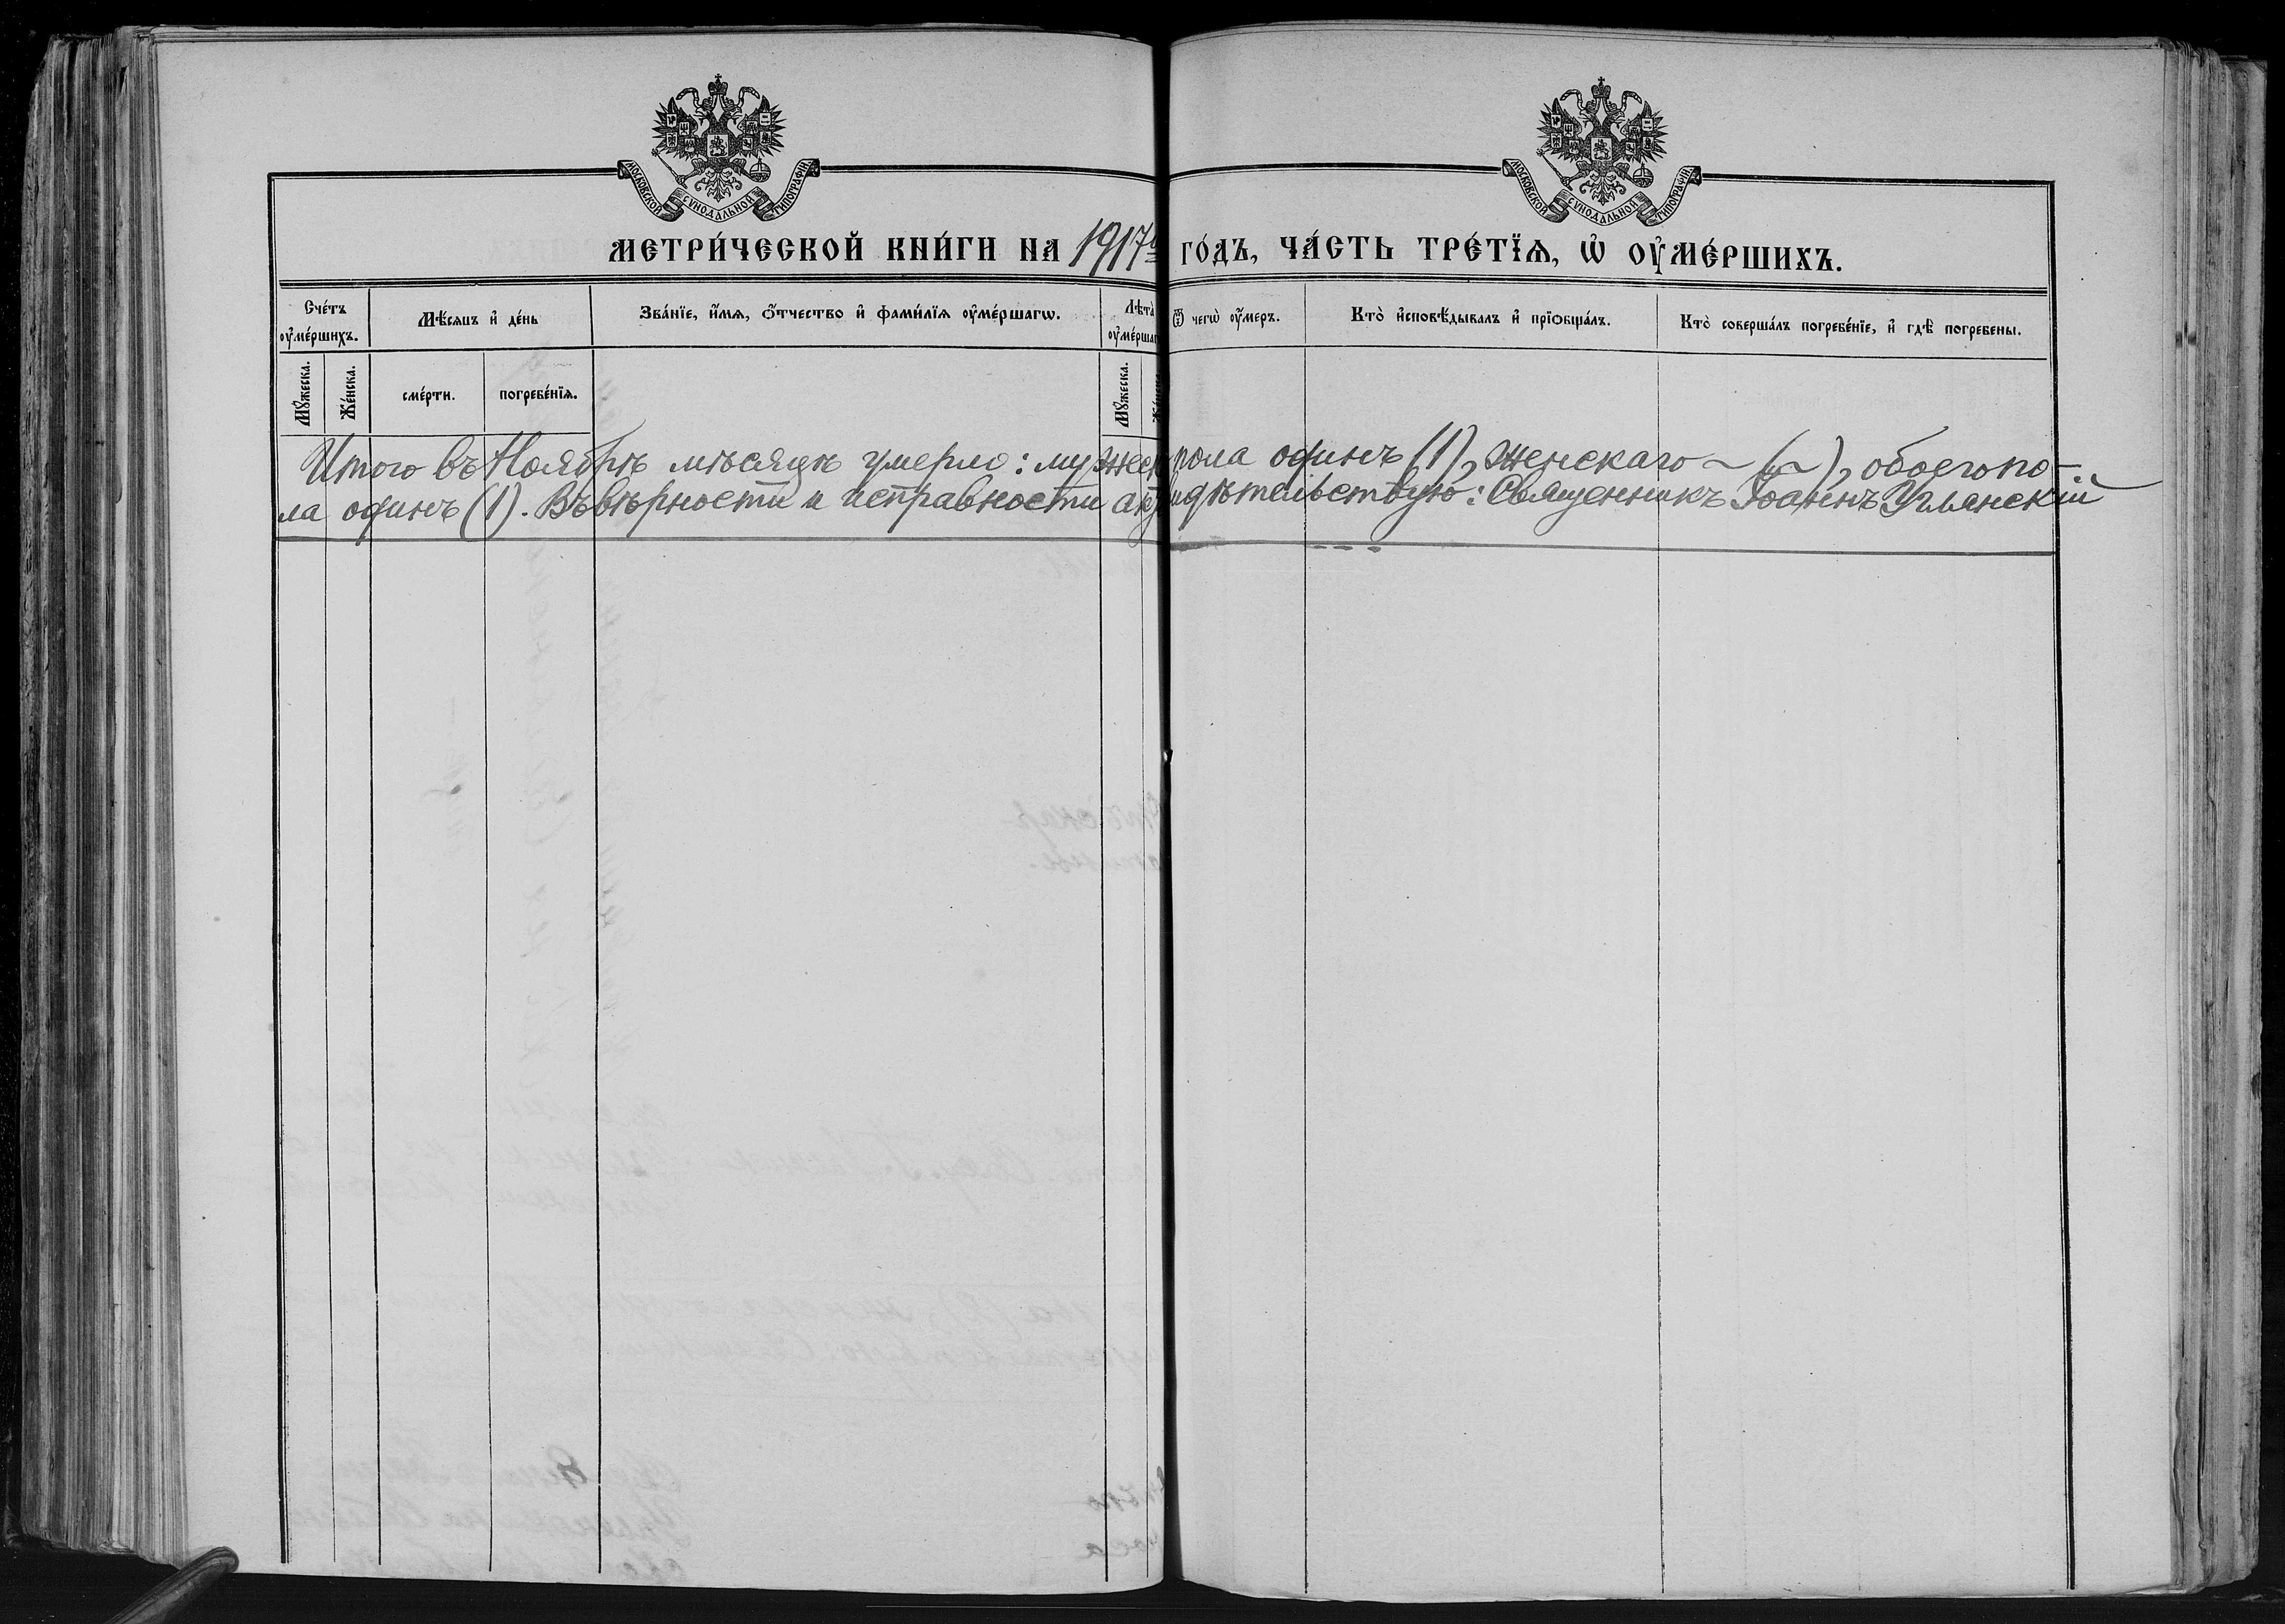 МОСКОВСКОЙ СѴНОДАЛЬНОЙ ТИПОГРАФІИ.
МОСКОВСКОЙ СѴНОДАЛЬНОЙ ТИПОГРАФІИ.
МЕТРИ́ЧЕСКОЙ КНИ́ГИ НА 1917й ГО́ДЪ, ЧА́СТЬ ТРЕ́ТЇѦ, Ѡ҆ ОУ҆МЕ́РШИХЪ.
Сче́тъ оу҆ме́ршихъ.
Мѣ́сяцъ и҆ де́нь
Зва́нїе, и҆́мѧ, ѻ҆́тчество и҆ фами́лїѧ оу҆ме́ршагѡ.
Лѣта̀
Ѿ чегѡ̀ оу҆́меръ.
Кто̀ и҆сповѣ́дывалъ и҆ прїѻбща́лъ.
Кто̀ соверша́лъ погребе́нїе, и҆ гдѣ̀ погребены.
Мꙋ́жеска.
Же́нска.
сме́рти.
погребе́нїѧ.
Мꙋ́жеска.
Итого въ Ноябрѣ мѣсяцѣ умерло: мужеск пола одинъ (1), женскаго ~ (~), обоего по-
ла одинъ (1). Въ вѣрности и исправности акт идѣтельствую: Священникъ Іоаннъ Углянскій